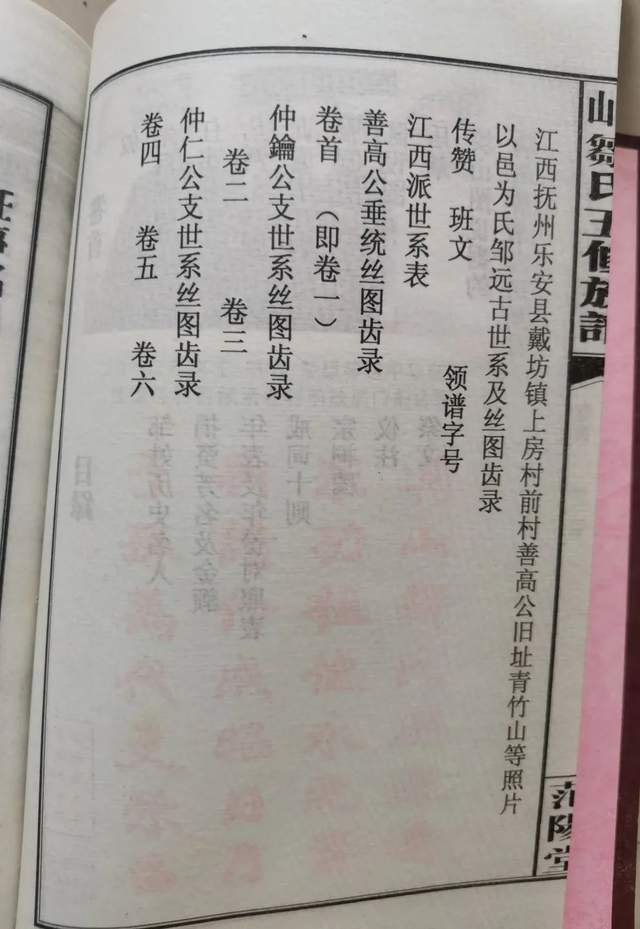 山鄒氏五修族譜
范陽堂
江西抚州乐安县戴坊镇上房村前村善高公旧址青竹山等照片
以邑为氏邹远古世系及丝图齿录
传赞 班文 领谱字号
江西派世系表
善高公垂统丝图齿录
卷首 （即卷一）
仲鑰公支世系丝图齿录
卷二 卷三
仲仁公支世系丝图齿录
卷四 卷五 卷六